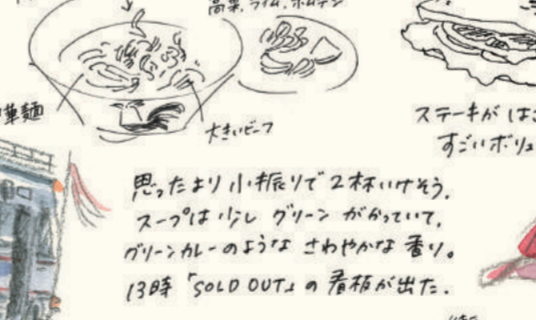 高菜、ライム、ホムデン
華麺
大きいビーフ
ステーキが はさ
すごいボリュ
思ったより小振りで2杯いけそう。
スープは少し グリーン がかっていて、
グリーンカレーのような さわやかな 香り。
13時「SOLD OUT」の 看板が出た。